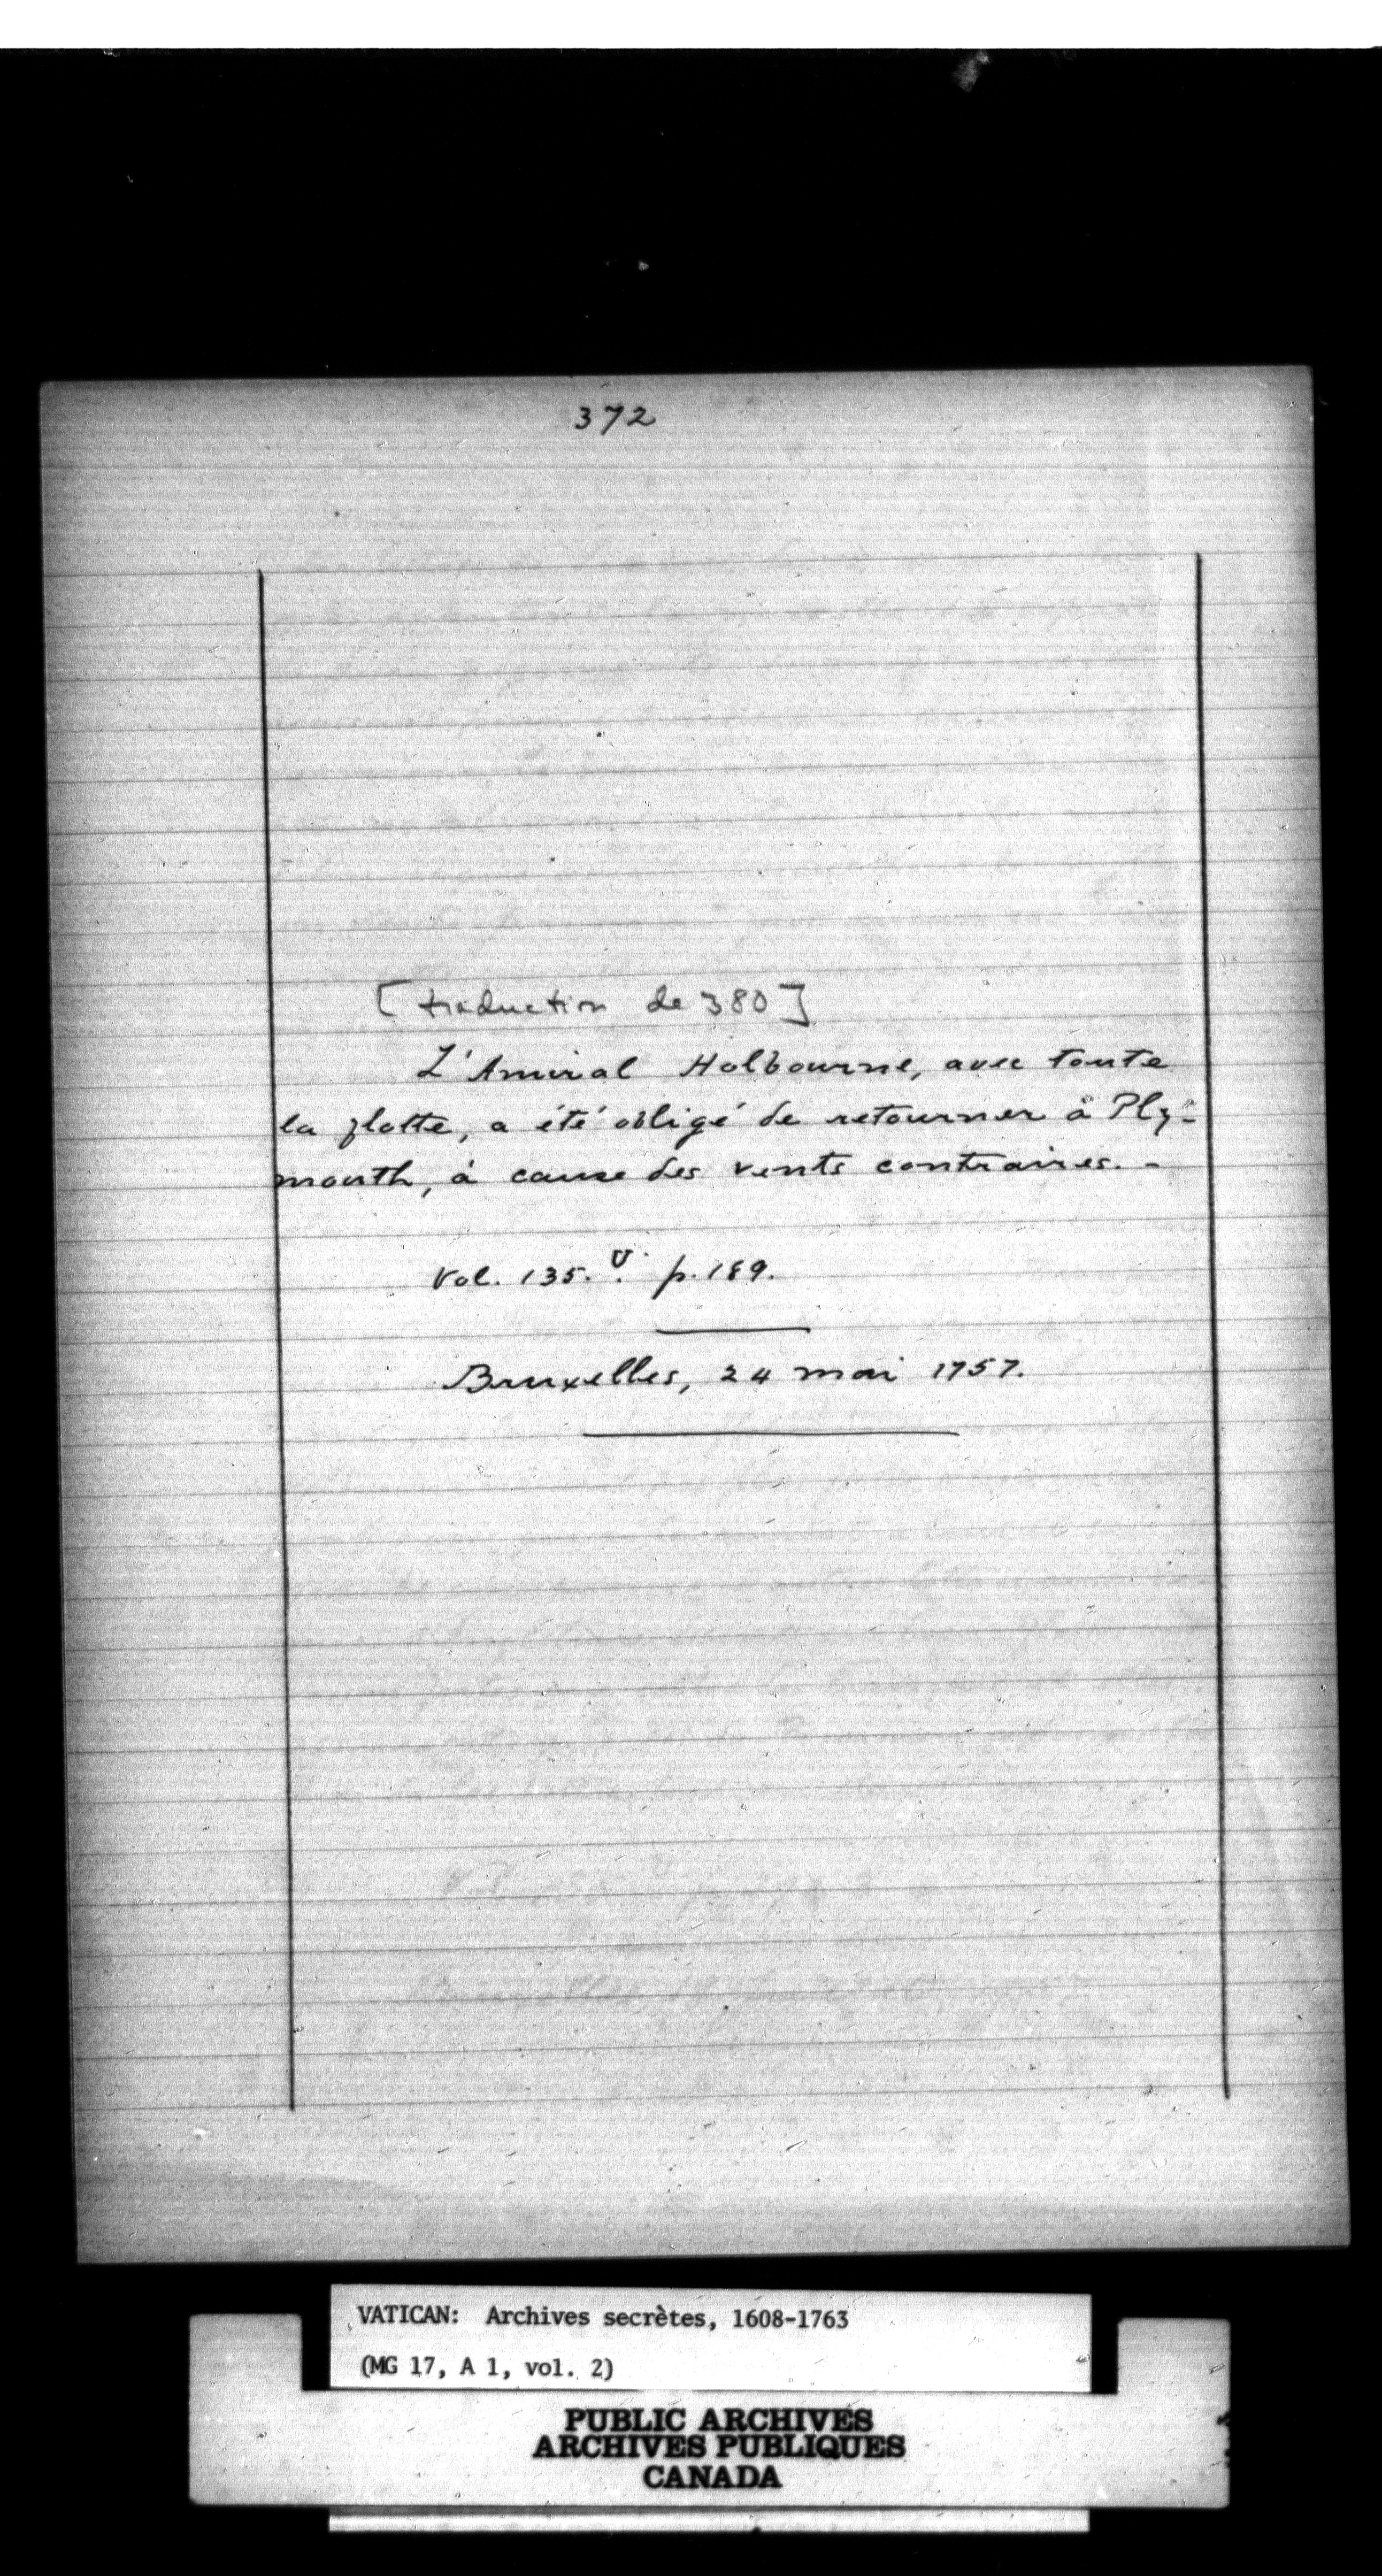 372
[traduction de 380]
L'Amiral Holbourne, avec toute
la flotte, a été obligé de retourner à Ply-
mouth, à cause des vents contraires. -
Vol. 135. v. p. 189.
Bruxelles, 24 mai 1757.
VATICAN: Archives secrètes, 1608-1763
(MG 17, A 1, vol. 2)
PUBLIC ARCHIVES
ARCHIVES PUBLIQUES
CANADA